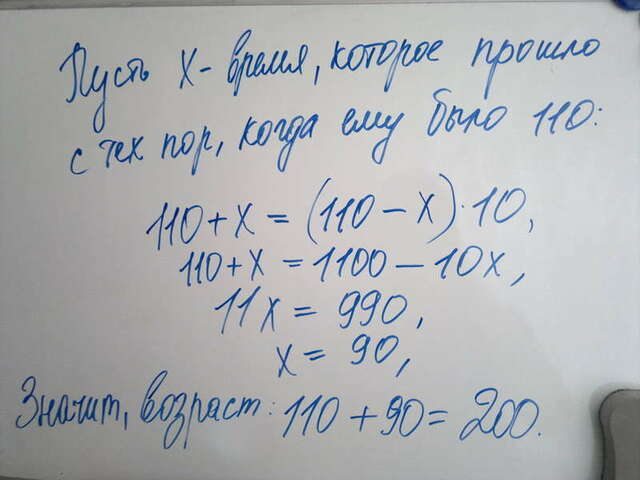 Пусть x - время, которое прошло
с тех пор, когда ему было 110:
110 + x = (110 - x) · 10,
110 + x = 1100 - 10x,
11x = 990,
x = 90,
Значит, возраст: 110 + 90 = 200.